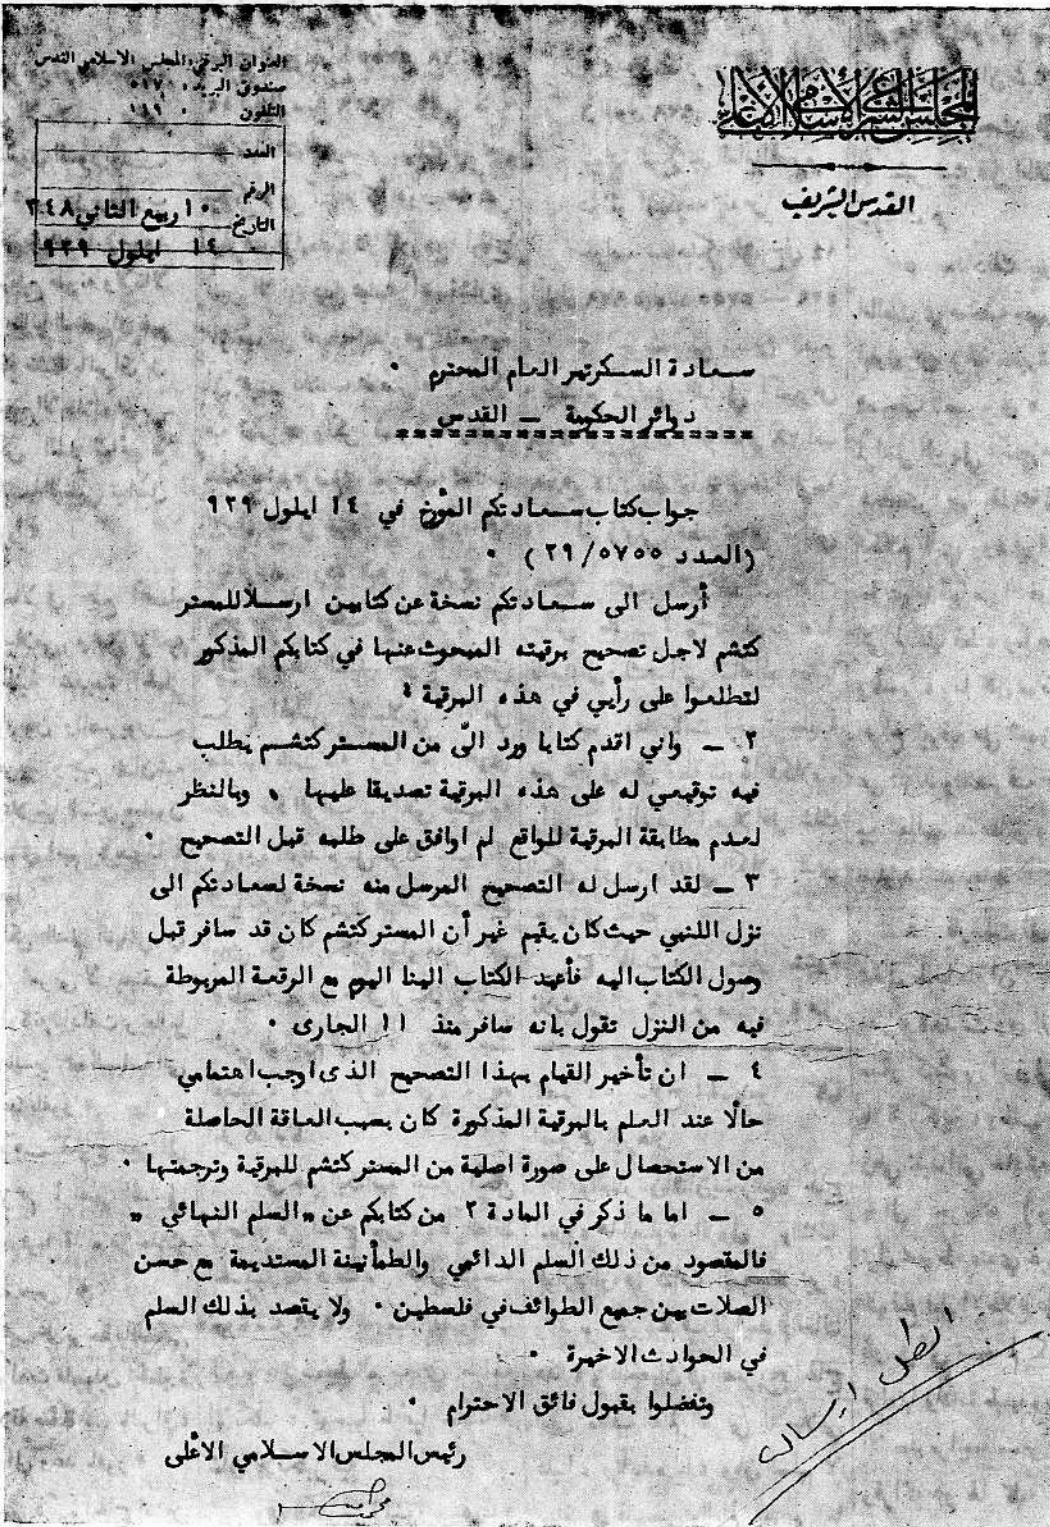 المجلس الشرعي الاسلامي الاعلى
القدس الشريف
العنوان البرقي: المجلس الاسلامي القدس
صندوق البريد، ٥١٧
التلفون ٠ ١٨٩
العدد
الرقم
التاريخ ١٠ ربيع الثاني ٣٤٨
١٤ ايلول ٩٢٩
سعادة السكرتير العام المحترم ٠
دوائر الحكومة ــ القدس
جواب كتاب سعادتكم المؤرخ في ١٤ ايلول ٩٢٩
(العدد ٢٩/٥٧٥٥) ٠
أرسل الى سعادتكم نسخة عن كتابين ارسلا للمستر
كتشم لاجل تصحيح برقيته المبحوث عنها في كتابكم المذكور
لتطلعوا على رأيي في هذه البرقية :
٢ ــ واني اقدم كتابا ورد الىّ من المستر كتشم يطلب
فيه توقيعي له على هذه البرقية تصديقا عليها ، وبالنظر
لعدم مطابقة البرقية للواقع لم اوافق على طلبه قبل التصحيح ٠
٣ ــ لقد ارسل له التصحيح المرسل منه نسخة لسعادتكم الى
نزل اللنبي حيث كان يقيم غير أن المستر كتشم كان قد سافر قبل
وصول الكتاب اليه فأعيد الكتاب الينا اليوم مع الرقعة المربوطة
فيه من النزل تقول بانه سافر منذ ١١ الجارى ٠
٤ ــ ان تأخير القيام بهذا التصحيح الذى اوجب اهتمامي
حالًا عند العلم بالبرقية المذكورة كان بسبب العاقة الحاصلة
من الاستحصال على صورة اصلية من المستر كتشم للبرقية وترجمتها ٠
٥ ــ اما ما ذكر في المادة ٢ من كتابكم عن " السلم النهائي "
فالمقصود من ذلك السلم الدائمي والطمأنينة المستديمة مع حسن
الصلات بين جميع الطوائف في فلسطين ٠ ولا يقصد بذلك السلم
في الحوادث الاخيرة ٠
وتفضلوا بقبول فائق الاحترام ٠
رئيس المجلس الاسلامي الأعلى
محمد امين